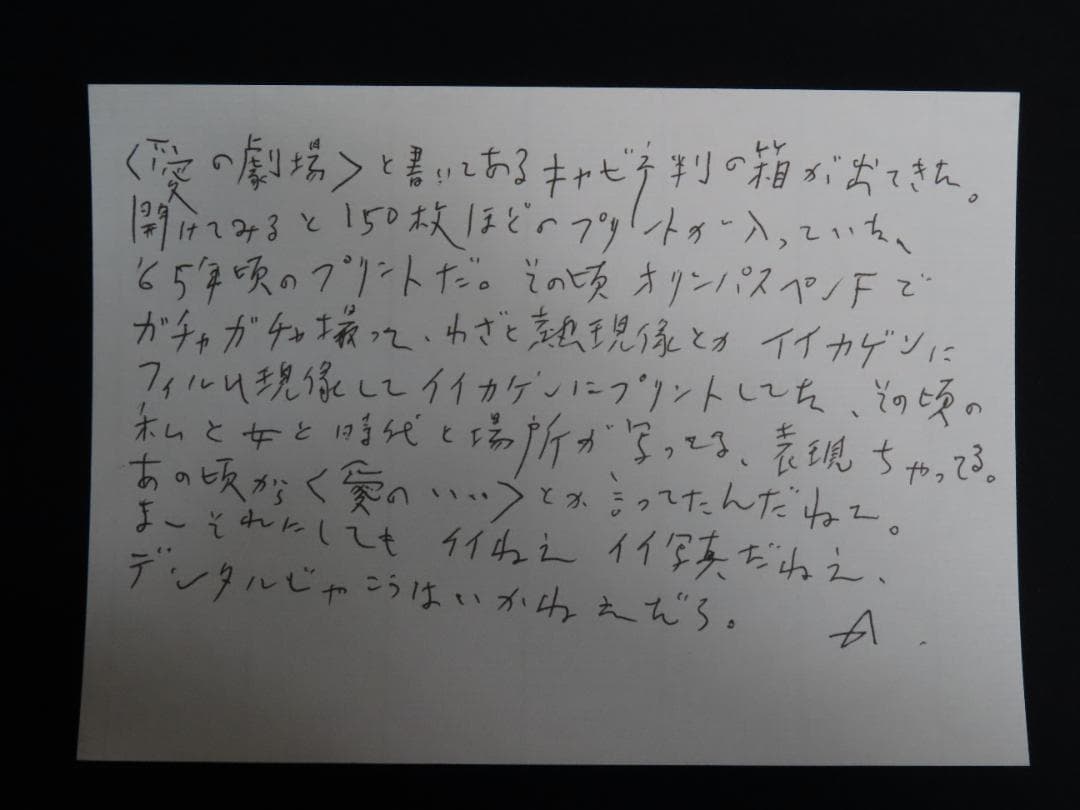 〈愛の劇場〉と書いてあるキャビネ判の箱が出てきた。
開けてみると150枚ほどのプリントが入っていた、
'65年頃のプリントだ。その頃オリンパスペンFで
ガチャガチャ撮って、わざと熱現像とかイイカゲンに
フィルム現像してイイカゲンにプリントしてた、その頃の
私と女と時代と場所が写ってる、表現ちゃってる。
あの頃から〈愛の・・・〉とか言ってたんだねェ。
まーそれにしてもイイねえイイ写真だねえ、
デジタルじゃこうはいかねえだろ。
A.